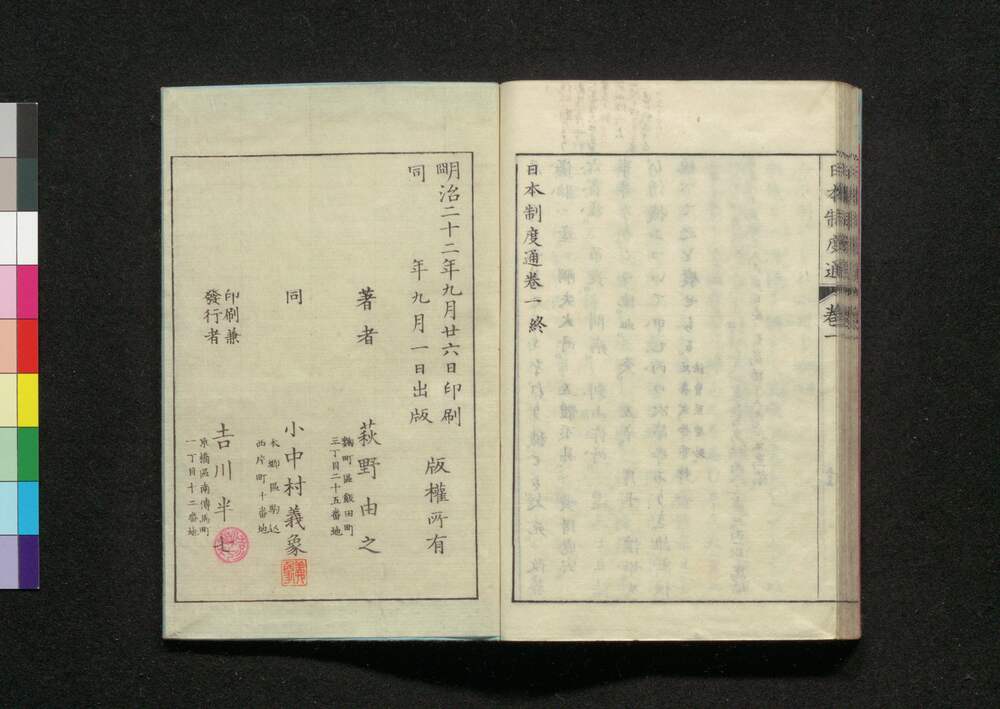 日本制度通 卷一
日本制度通卷一終
明治二十二年九月廿六日印刷
同年九月一日出版
版權所有
著者
萩野由之
麹町區飯田町
三丁目二十五番地
同
小中村義象
本郷區駒込
西片町十番地
印刷兼
發行者
吉川半七
京橋區南傳馬町
一丁目十二番地